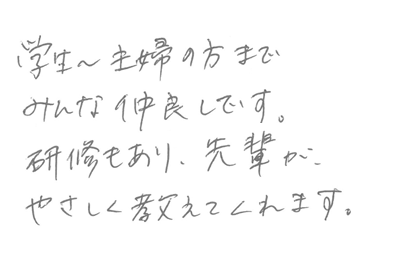 学生~主婦の方まで
みんな仲良しです。
研修もあり、先輩が、
やさしく教えてくれます。